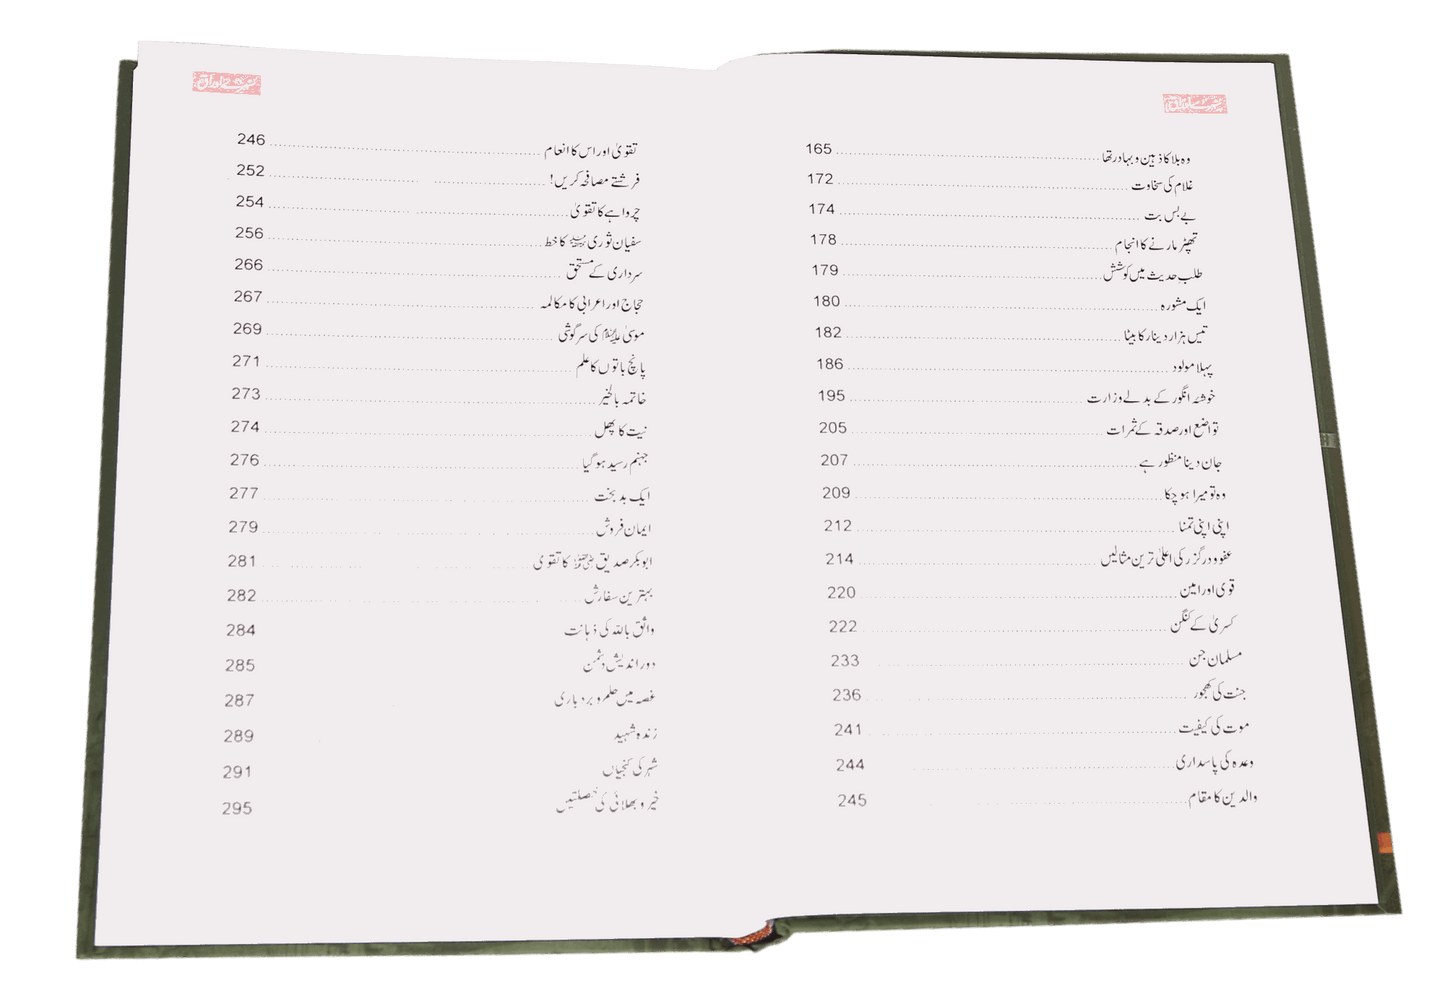 سنہرے اوراق
وہ بلا کا ذہین و بہادر تھا 165
غلام کی سخاوت 172
بے بس بت 174
تھپڑ مارنے کا انجام 178
طلب حدیث میں کوشش 179
ایک مشورہ 180
تیس ہزار دینار کا بیٹا 182
پہلا مولود 186
خوشہ انگور کے بدلے وزارت 195
تواضع اور صدقہ کے ثمرات 205
جان دینا منظور ہے 207
وہ تو میرا ہو چکا 209
اپنی اپنی تمنا 212
عفو و درگزر کی اعلیٰ ترین مثالیں 214
قوی اور امین 220
کسریٰ کے کنگن 222
مسلمان جن 233
جنت کی کھجور 236
موت کی کیفیت 241
وعدہ کی پاسداری 244
والدین کا مقام 245
سنہرے اوراق
تقویٰ اور اس کا انعام 246
فرشتے مصافحہ کریں! 252
چرواہے کا تقویٰ 254
سفیان ثوری ؒ کا خط 256
سرداری کے مستحق 266
حجاج اور اعرابی کا مکالمہ 267
موسیٰ علیہ السلام کی سرگوشی 269
پانچ باتوں کا علم 271
خاتمہ بالخیر 273
نیت کا پھل 274
جہنم رسید ہو گیا 276
ایک بدبخت 277
ایمان فروش 279
ابوبکر صدیق رضی اللہ عنہ کا تقویٰ 281
بہترین سفارش 282
واثق باللہ کی ذہانت 284
دور اندیش دشمن 285
غصہ میں حلم و بردباری 287
زندہ شہید 289
شہر کی کنجیاں 291
خیر و بھلائی کی خصلتیں 295